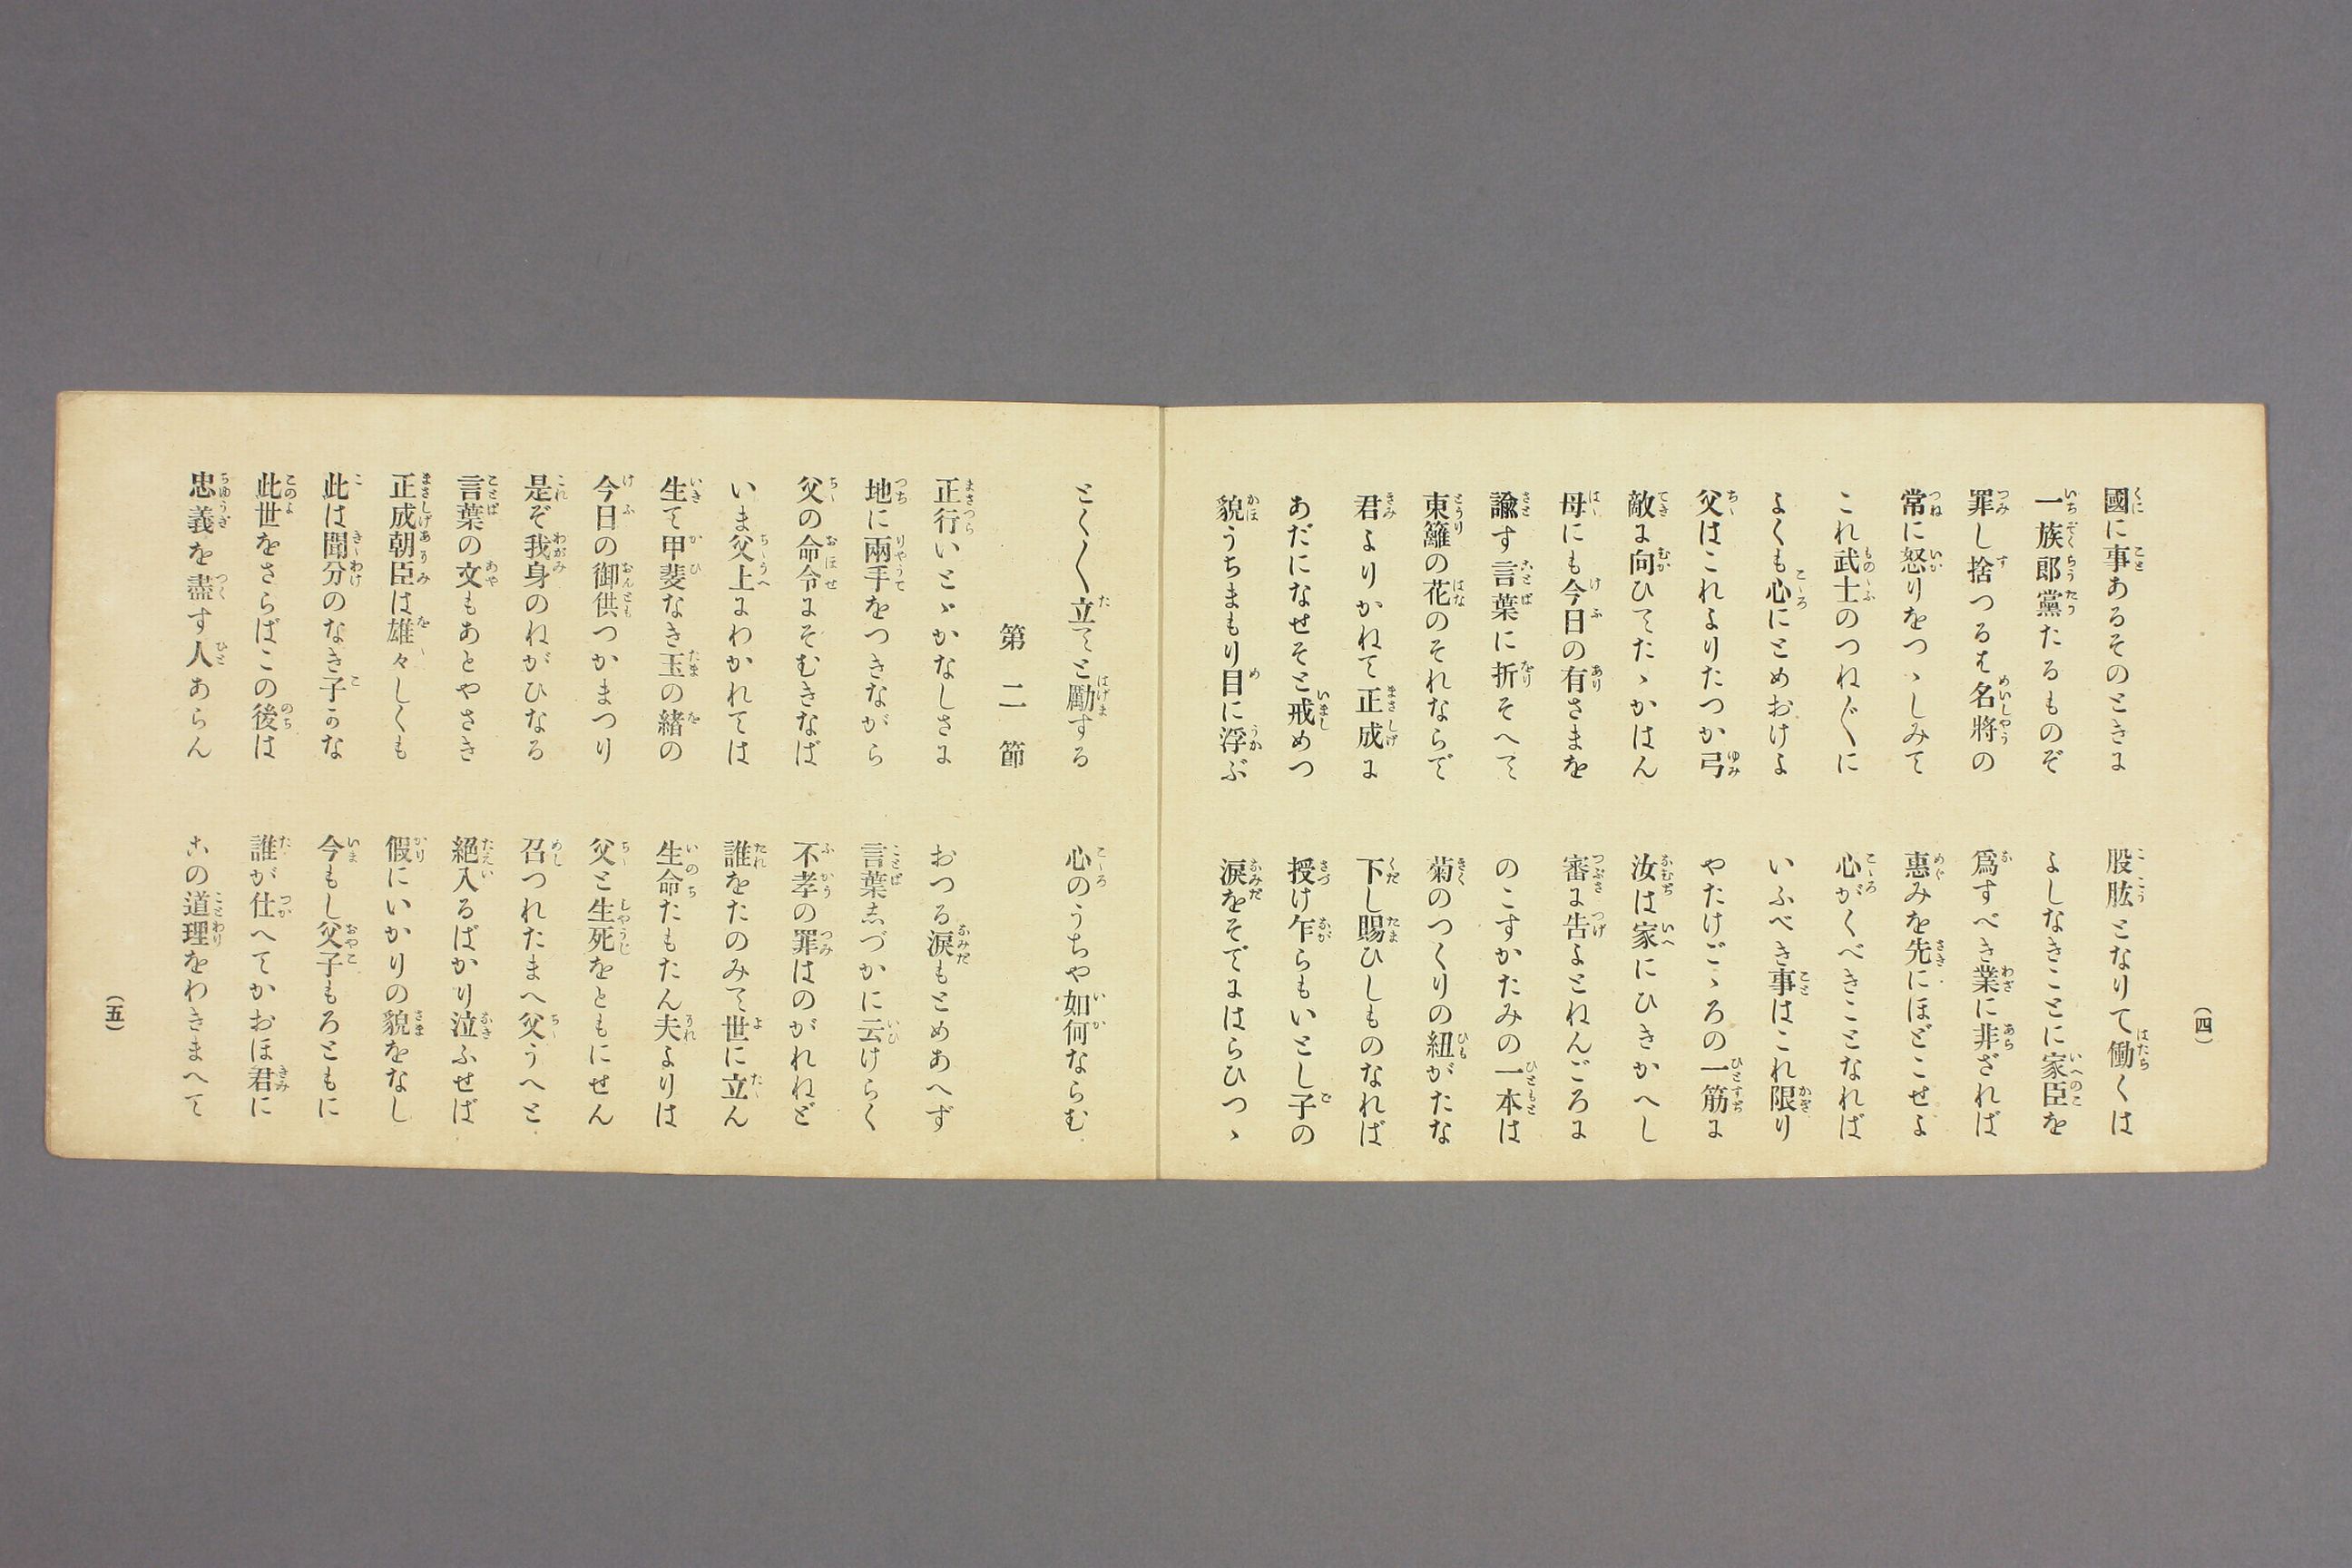 (四)
國に事あるそのときに　股肱となりて働くは
一族郎黨たるものぞ　よしなきことに家臣を
罪し捨つるは名將の　爲すべき業に非ざれば
常に怒りをつゝしみて　惠みを先にほどこせよ
これ武士のつね〴〵に　心がくべきことなれば
よくも心にとめおけよ　いふべき事はこれ限り
父はこれよりたつか弓　やたけごゝろの一筋に
敵に向ひてたゝかはん　汝は家にひきかへし
母にも今日の有さまを　審に告よとねんごろに
諭す言葉に折そへて　のこすかたみの一本は
東籬の花のそれならで　菊のつくりの紐がたな
君よりかねて正成に　下し賜ひしものなれば
あだになせそと戒めつ　授け乍らもいとし子の
貌うちまもり目に浮ぶ　淚をそでにはらひつゝ
とく〳〵立てと勵する　心のうちや如何ならむ
第二節
正行いとゞかなしさに　おつる淚もとめあへず
地に兩手をつきながら　言葉しづかに云けらく
父の命令にそむきなば　不孝の罪はのがれねど
いま父上にわかれては　誰をたのみて世に立ん
生て甲斐なき玉の緒の　生命たもたん夫よりは
今日の御供つかまつり　父と生死をともにせん
是ぞ我身のねがひなる　召つれたまへ父うへと
言葉の文もあとやさき　絕入るばかり泣ふせば
正成朝臣は雄々しくも　假にいかりの貌をなし
此は聞分のなき子かな　今もし父子もろともに
此世をさらばこの後は　誰が仕へてかおほ君に
忠義を盡す人あらん　この道理をわきまへて
(五)